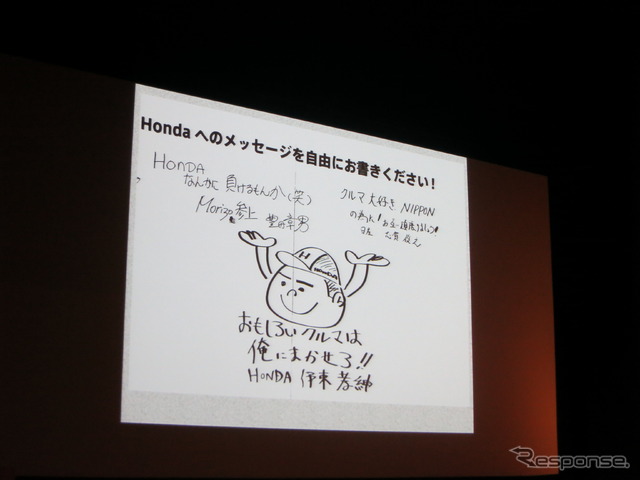 Hondaへのメッセージを自由にお書きください!
HONDA
なんかに負けるもんか(笑)
Morizo参上 豊田章男
クルマ大好きNIPPON
の為に!
日産 志賀俊之
H HONDA
おもしろいクルマは
俺にまかせろ!!
HONDA 伊東孝紳
Response.